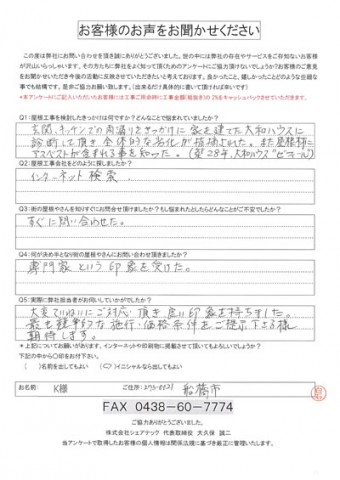 お客様のお声をお聞かせください
この度は弊社にお問い合わせを頂き誠にありがとうございました。世の中には弊社の存在やサービスをご存知ないお客様
が沢山いらっしゃいます。その方たちに弊社をよく知って頂くためのアンケートにご協力頂けないでしょうか?お客様のご意見
をお聞かせいただき今後の活動に反映させていただきたいと考えております。良かったこと、嬉しかったことどのような些細な
事でも結構です。是非ご協力お願い致します。(出来るだけ具体的に書いて頂けると幸いです!)
*本アンケートにご記入いただいたお客様には工事ご用命時に工事金額(税抜き)の2%をキャッシュバックさせていただきます。
Q1:屋根工事を検討したきっかけは何ですか?どんなことで悩まれていましたか?
玄関、キッチンでの雨漏りをきっかけに家を建てた大和ハウスに
診断して頂き全体的な劣化が指摘された。また屋根材に
アスベストが含まれる事を知った。(築28年、大和ハウス
Q2:屋根工事会社をどのように探しましたか?
インターネット検索
Q3:街の屋根やさんを知りすぐにお問合せ頂けましたか?もし悩まれたとしたらどんなことがご不安でしたか?
すぐに問い合わせた。
Q4:何が決め手となり街の屋根やさんにお問い合わせ頂きましたか?
専門家という印象を受けた。
Q5:実際に弊社担当者がお伺いしていかがでしたか?
大変ていねいにご対応頂き、良い印象を持ちました。
最も競争的な施行・価格条件をご提示下さる様
期待します。
*上記についてお願いがあります。インターネットや印刷物に掲載させて頂いてもよろしいでしょうか?
下記の中から〇印をお付下さい。
( )名前を出してもよい (〇)イニシャルなら出してもよい
お名前: K様 ご住所:273-0021 船橋市
FAX 0438-60-7774
ご協力ありがとうございました。
株式会社シェアテック 代表取締役 大久保 誠二
当アンケートで取得したお客様の個人情報は関係法規に基づき厳正に管理いたします。